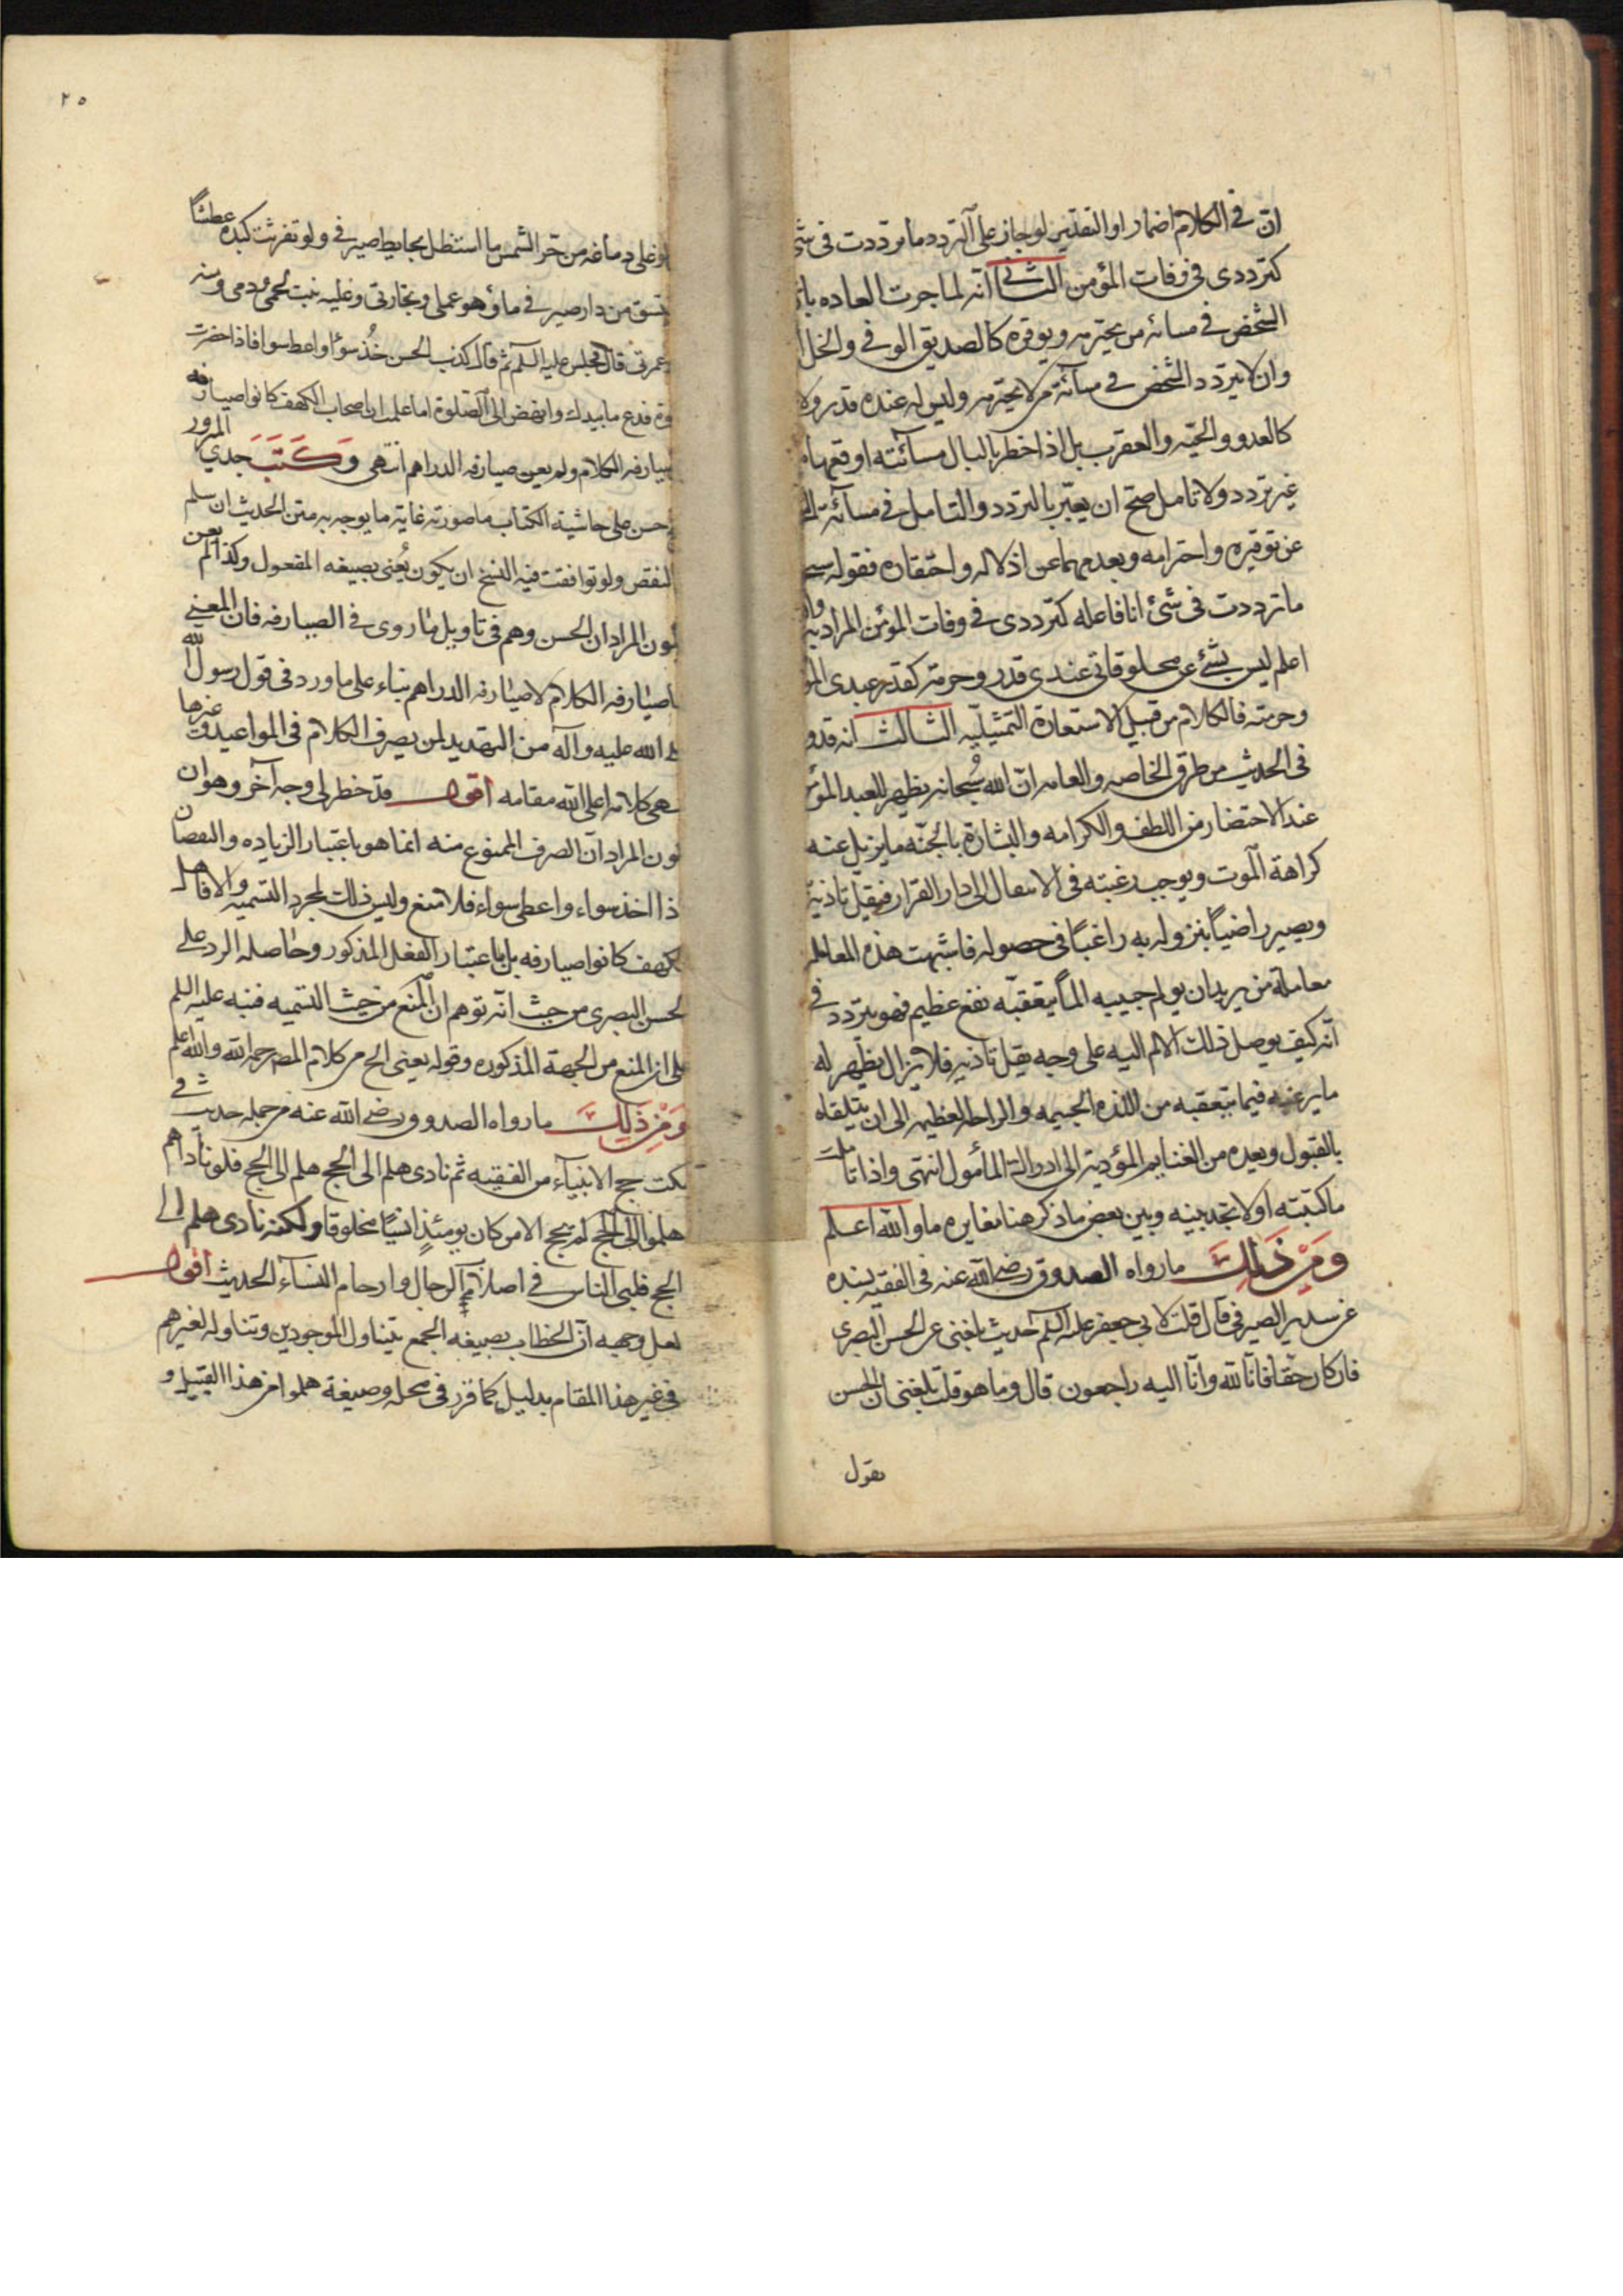 ان في الكلام اضمارا والتقدير لو جاز على التردد ما ترددت في شئ
كترددى في وفات المؤمن الثاني انه لما جرت العاده بان
الشخص في مسائه من يحترمه ويوقره كالصديق الوفي والخل
وان لا يتردد الشخص في مسائة من لا يحترمه وليس له عنده قدر ولا
كالعدو والحيه والعقرب بل اذا خطر بالبال مسائته اوقعها من
غير تردد ولا تامل صح ان يعبر بالتردد والتامل في مسائة
عن توقيره واحترامه وبعدمهما عن اذلاله واحتقاره فقوله سبحانه
ما ترددت في شئ انا فاعله كترددى في وفات المؤمن المراد به والله
اعلم ليس بشئ عن مخلوقاتي عندى قدر وحرمة كقدر عبدى
وحرمته فالكلام من قبيل الاستعارة التمثيليه الثالث انه قد
في الحديث من طرق الخاصه والعامه ان الله سبحانه يظهر للعبد المؤمن
عند الاحتضار من اللطف والكرامه والبشارة بالجنه ما يزيل عنه
كراهة الموت ويوجب رغبته في الانتقال الى دار القرار فيقل تاذيه
ويصير راضيا بنزوله به راغبا في حصوله فاشبهت هذه المعامله
معاملة من يريد ان يولم حبيبه الما يتعقبه نفع عظيم فهو يتردد في
انه كيف يوصل ذلك الالم اليه على وجه يقل تاذيه فلا يزال يظهر له
ما يرغبه فيما يتعقبه من اللذه الجسيمه والراحه العظيمه الى ان يتلقاه
بالقبول ويعده من الغنايم المؤدية الى ادراك المأمول انتهى واذا تاملت
ما كتبته اولا تجد بينه وبين بعض ما ذكر هنا مغايره ما والله اعلم
ومن ذلك ما رواه الصدوق رضي الله عنه في الفقيه بسنده
عن سدير الصيرفي قال قلت لابي جعفر عليه السلم حديث بلغني عن الحسن البصرى
فان كان حقا فانا لله وانا اليه راجعون قال وما هو قلت بلغني ان الحسن
يقول
لو غلى دماغه من حر الشمس ما استظل بحايط صيرفي ولو تفرثت كبده عطشا
لم يستق من دار صيرفي ماء وهو عملى وتجارتي وعليه نبت لحمى ودمى ومنه
وعمرتى قال فجلس عليه السلم ثم قال كذب الحسن خذ سواء واعط سواء فاذا حضرت
الصلوة فدع ما بيدك وانهض الى الصلوة اما علمت ان اصحاب الكهف كانوا صيارفه
صيارفه الكلام ولم يعن صيارفه الدراهم انتهى وكتب جدي المبرور
الحسن على حاشية الكتاب ما صورته غاية ما يوجه به متن الحديث ان سلم
من النقص ولو توافقت فيه النسخ ان يكون يعنى بصيغه المفعول وكذا لم يعن
يكون المراد ان الحسن وهم في تاويل ما روى في الصيارفه فان المعنى
صيارفه الكلام لا صيارفه الدراهم بناء على ما ورد في قول رسول الله
صلى الله عليه وآله من التهديد لمن يصرف الكلام في المواعيد وغيرها
انتهى كلامه اعلى الله مقامه اقول قد خطر لي وجه آخر وهو ان
يكون المراد ان الصرف الممنوع منه انما هو باعتبار الزياده والنقصان
اذا اخذ سواء واعطى سواء فلا منع وليس ذلك لمجرد التسميه والا فاهل
الكهف كانوا صيارفه بل باعتبار الفعل المذكور وحاصله الرد على
الحسن البصرى من حيث انه توهم ان المنع من حيث التسميه فنبه عليه السلم
على ان المنع من الجهة المذكوره وقوله يعنى الخ من كلام المصنف رحمه الله والله اعلم
ومن ذلك ما رواه الصدوق رضي الله عنه من جمله حديث في
نكت حج الانبيآء من الفقيه ثم نادى هلم الى الحج هلم الى الحج فلو ناداهم
هلموا الى الحج لم يحج الا من كان يومئذ انسيا مخلوقا ولكنه نادى هلم الى
الحج فلبى الناس في اصلاب الرجال وارحام النساء الحديث اقول
لعل وجهه ان الخطاب بصيغه الجمع يتناول الموجودين وتناوله لغيرهم
في غير هذا المقام بدليل كما قرر في محله وصيغة هلموا من هذا القبيل و
٢٥